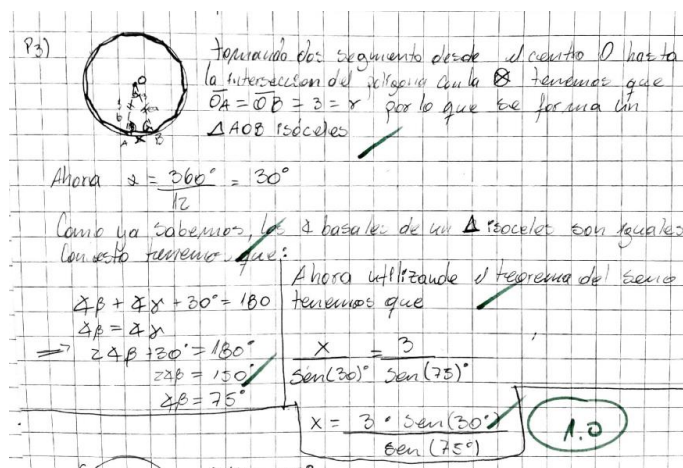 P3)
tomando dos segmento desde el centro O hasta
la intersección del poligono con la ⊗ tenemos que
OA = OB = 3 = r por lo que se forma un
△AOB isóceles
O
A x B
Ahora α = 360° / 12 = 30°
Como ya sabemos, los ∡ basales de un △ isoceles son iguales
Con esto tenemos que:
∡β + ∡γ + 30° = 180
∡β = ∡γ
⇒ 2∡β + 30° = 180°
2∡β = 150°
∡β = 75°
Ahora utilizando el teorema del seno
tenemos que
x / Sen(30)° = 3 / Sen(75)°
x = 3 · Sen(30°) / sen(75°)
1.0